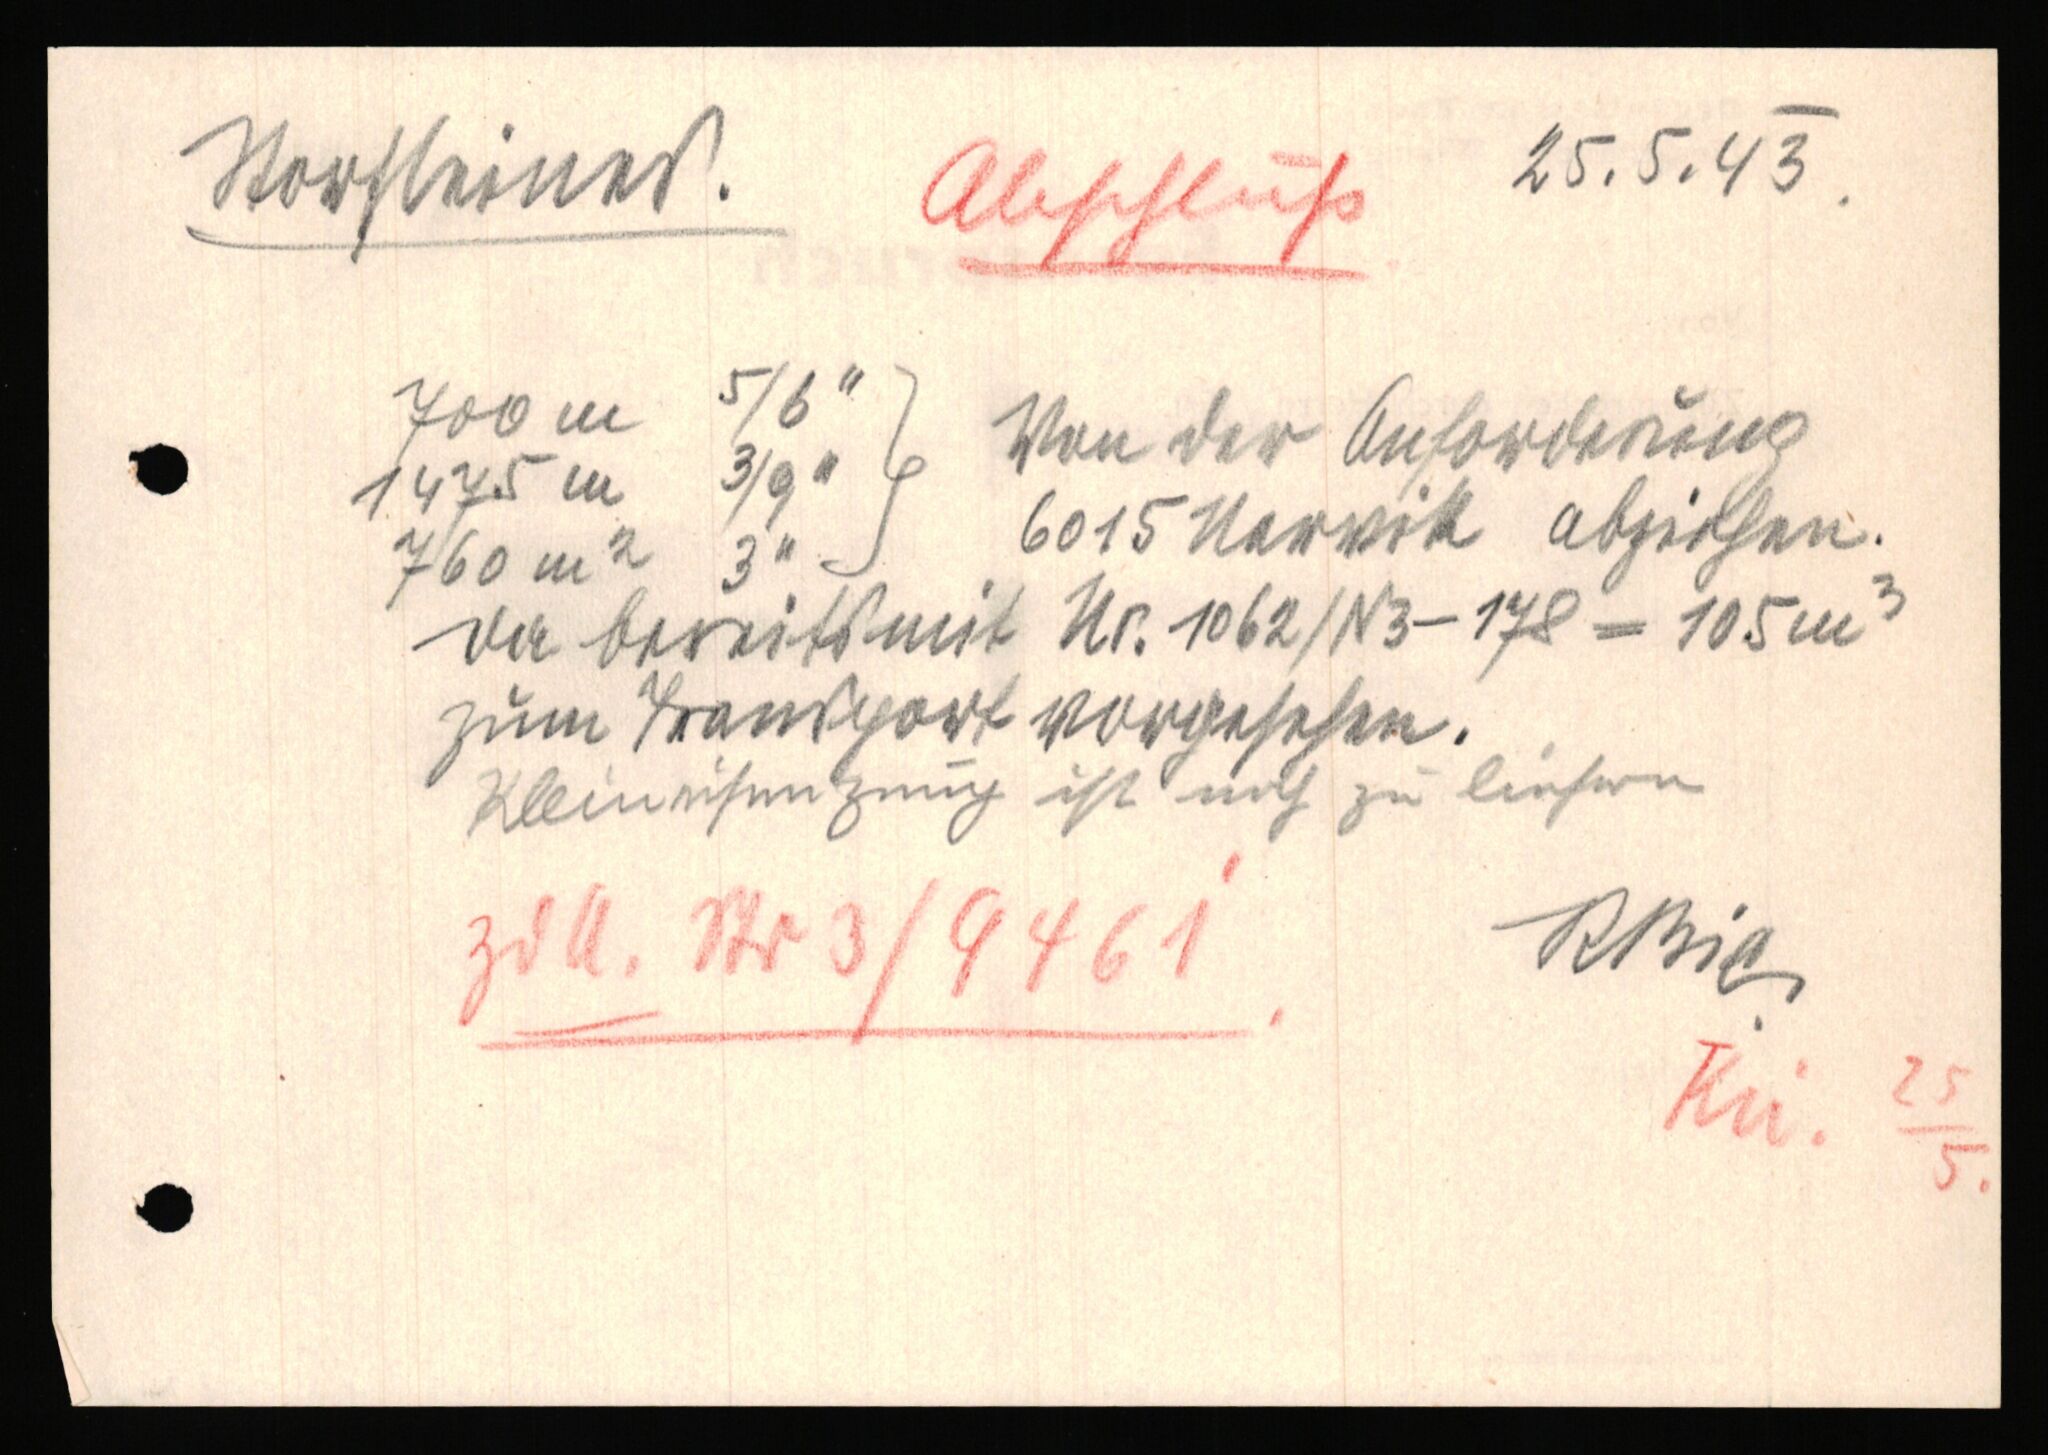 Storsteines. Abschluß 25.5.43.
700 m 5/6"
1475 m 3/9" Von der Anforderung
760 m² 3" 6015 Narvik abziehen.
da bereits mit Nr. 1062/N3-178 = 105 m³
zum Transport vorgesehen.
Kleineisenzeug ist noch zu liefern
z.d.A. Str 3/9461.
Kü. 25/5.